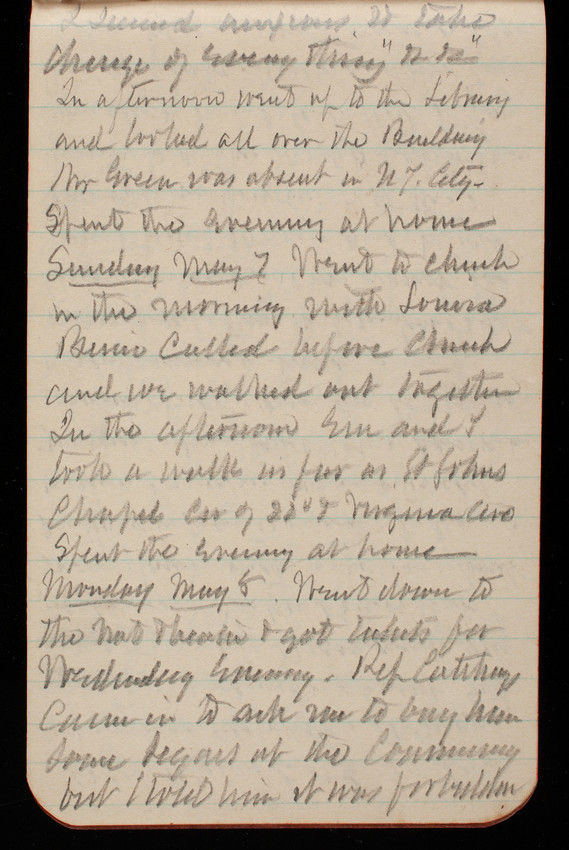 I seemed anxious to take
charge of every thing" &c &c"
In afternoon went up to the Library
and looked all over the Building
Mr Green was absent in N.Y. City.
Spent the evening at home
Sunday May 7 Went to church
in the morning with
Bernie Called before Church
and we walked out together
In the afternoon Em and I
took a walk as far as St Johns
Chapel Cor of 22d & Virginia Ave
Spent the evening at home
Monday May 8. Went down to
the Nat Theatre & got tickets for
Wednesday Evening. Rep Cutcheon
Came in to ask me to buy him
some segars at the Commissary
but I told him it was forbidden